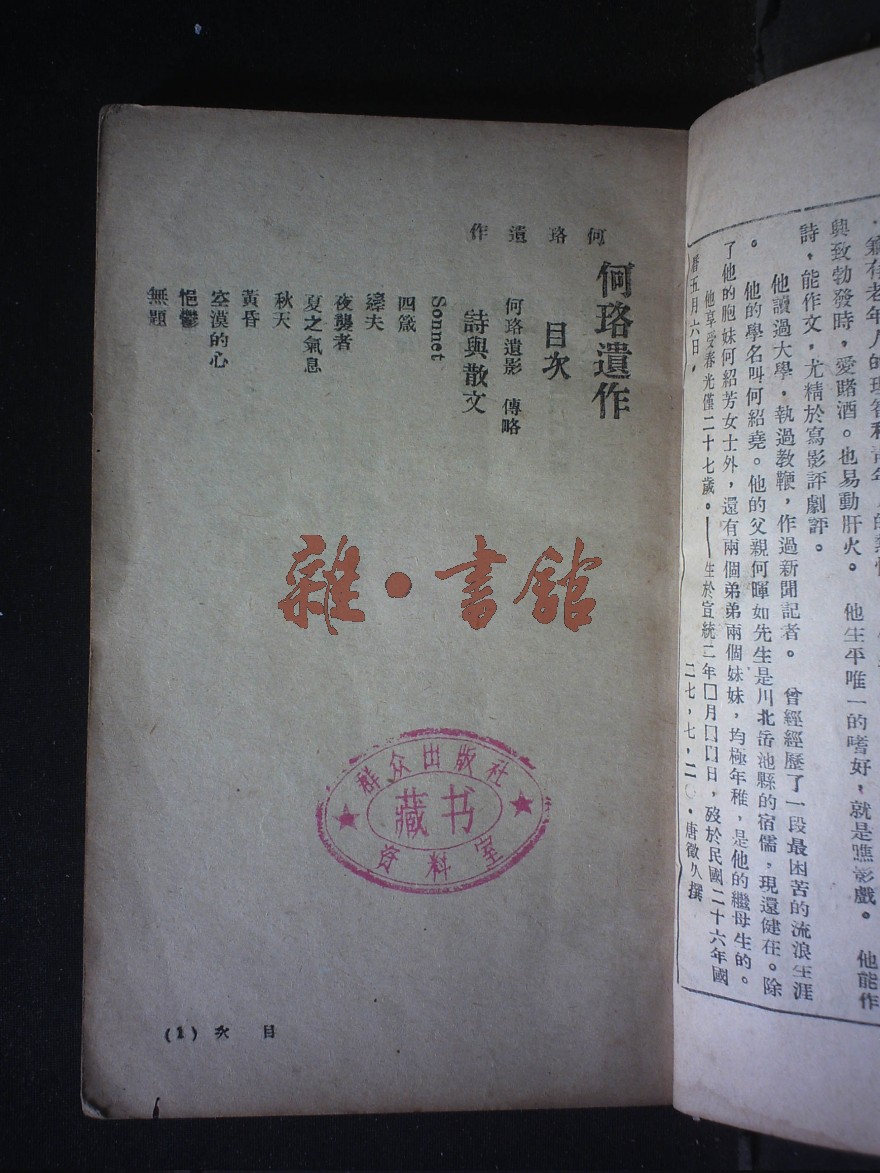 興致勃發時，愛賭酒。也易動肝火。　他生平唯一的嗜好，就是瞧影戲。　他能作
詩，能作文，尤精於寫影評劇評。
他讀過大學，執過教鞭，作過新聞記者。　曾經經歷了一段最困苦的流浪生涯
。　他的學名叫何紹堯。他的父親何暉如先生是川北岳池縣的宿儒，現還健在。除
了他的胞妹何紹芳女士外，還有兩個弟弟兩個妹妹，均極年稚，是他的繼母生的。
他享受春光僅二十七歲。——生於宣統二年□月□□日，歿於民國二十六年國
曆五月六日。
二七，七，二〇·唐徵久撰
何珞遺作
何珞遺作
目次
何珞遺影　傳略
詩與散文
Sonnet
四箴
縴夫
夜襲者
夏之氣息
秋天
黃昏
空漠的心
悒鬱
無題
目次(1)
雜·書館
群众出版社
藏书
资料室